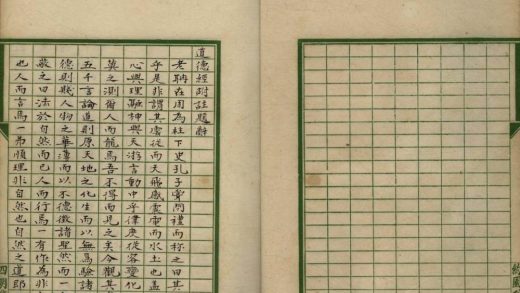 道德經附註題辭
老聃在周為柱下史孔子嘗問禮而称之曰其
乎是非謂其虛從而天飛感雲雷而水土也蓋
心與理融神與天游言動中乎律度從容變化
莫之測爾人而龍焉吾不得而見之矣今觀其
五千言論道則原天地之化生而以無為驗諸
德則賤人物之華薄而以不德徵諸聖然而一
歸之曰法於自然而已人而行焉一有作為非
也人而言焉一弗順理非自然也自然之道郎
四明